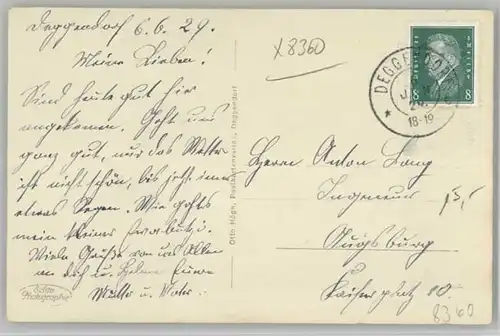 Deggendorf 6.6.29.
Meine Lieben!
Sind heute gut hier
angekommen. Geht uns
ganz gut, nur das Wetter
ist nicht schön, bis jetzt immer
etwas Regen. Wie gehts
mein kleiner
Viele Grüße von uns Allen
an dich u. Helene Eure
Mutter u. Vater.
Echte
Photographie
Otto Högn, Postkartenverlag, Deggendorf
x 8360
DEUTSCHES REICH
8 8
DEGGENDORF
18-19
Herrn Anton Lang
Ingenieur
15,-
Augsburg
Kaiserplatz 10.
8360